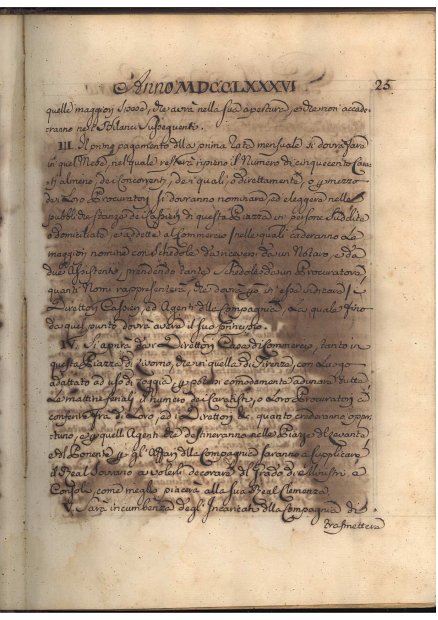 Anno MDCCLXXXVI 25
quelle maggiori spese, che avrà nella sua apertura, e che non accade-
ranno nei Bilanci susseguenti.
III. Il primo pagamento della prima rata mensuale si dovrà fare
in quel Mese, nel quale resterà ripieno il Numero di cinquecento Cara-
ti almeno, dei Concorrenti, de i quali, o direttamente, o p mezzo
dei Loro Procuratori si dovranno nominare, ed eleggere nelle
pubbliche stanze dei Cassieri di questa Piazza in persone sudditi
o domiciliate, e addette al Commercio, nelle quali caderanno la
maggior nomine con schedole da riceversi da un Notaro, e da
due Assistenti, prendendo tante schedole da un Procuratore
quanti Nomi rappresenterà, che
Direttori Cassieri, ed Agenti della Compagnia, la quale fino
da quel punto dovrà avere il suo principio.
IV. Si aprirà dai Direttori Casa di Commercio, tanto in
questa Piazza di Livorno, che in quella di Firenze, con Luogo
adattato ad uso di Loggia, p potersi comodamente adunare tutte
Le mattine feriali il numero dei Caratisti, o Loro Procuratori a
conferire fra di Loro, ed i Direttori quanto crederanno oppor-
tuno, e p quelli Agenti che destineranno nelle Piazze del Levante
e del Ponente p gl' Affari della Compagnia faranno supplicare
il Real Sovrano a volerli decorare del Grado di Ministri e
Consoli, come meglio piacerà alla sua Real Clemenza.
V. Sarà incumbenza degl' Incaricati della Compagnia di
trasmettere